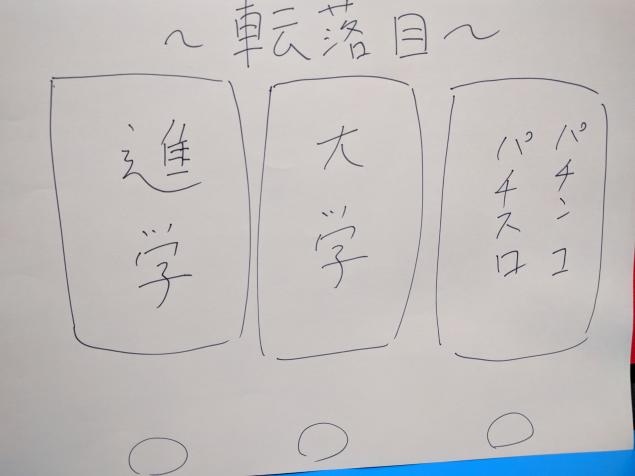 ～転落目～
進学
大学
パチンコ
パチスロ